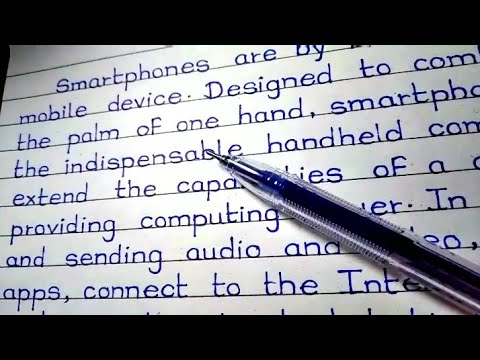 Smartphones are by
mobile device. Designed to com
the palm of one hand, smartpho
the indispensable handheld com
extend the capa ies of a
providing computing er. In
and sending audio and eo,
apps, connect to the Inte